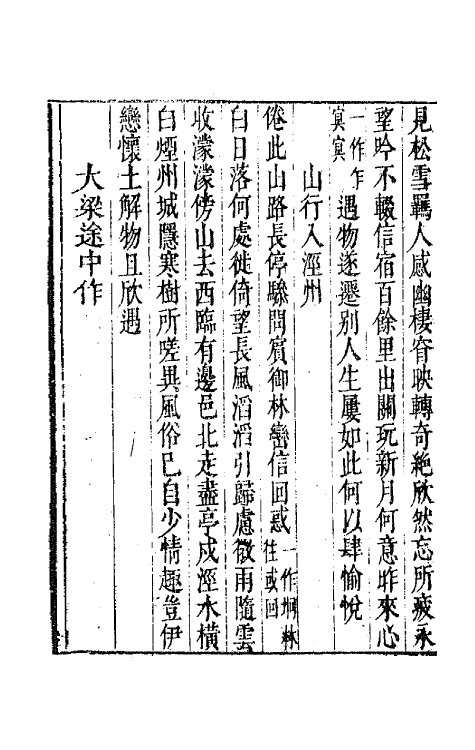 見松雪羈人感幽棲窅映轉奇絕欣然忘所疲永
望吟不輟信宿百餘里出關玩新月何意昨來心
一作乍冥冥遇物遂遷別人生屢如此何以肆愉悅
山行入涇州
倦此山路長停驂問賓御林巒信回惑一作垌林往或回
白日落何處徙倚望長風滔滔引歸慮微雨隨雲
收濛濛傍山去西臨有邊邑北走盡亭戍涇水橫
白煙州城隱寒樹所嗟異風俗已自少情趣豈伊
戀懷土解物且欣遇
大梁途中作